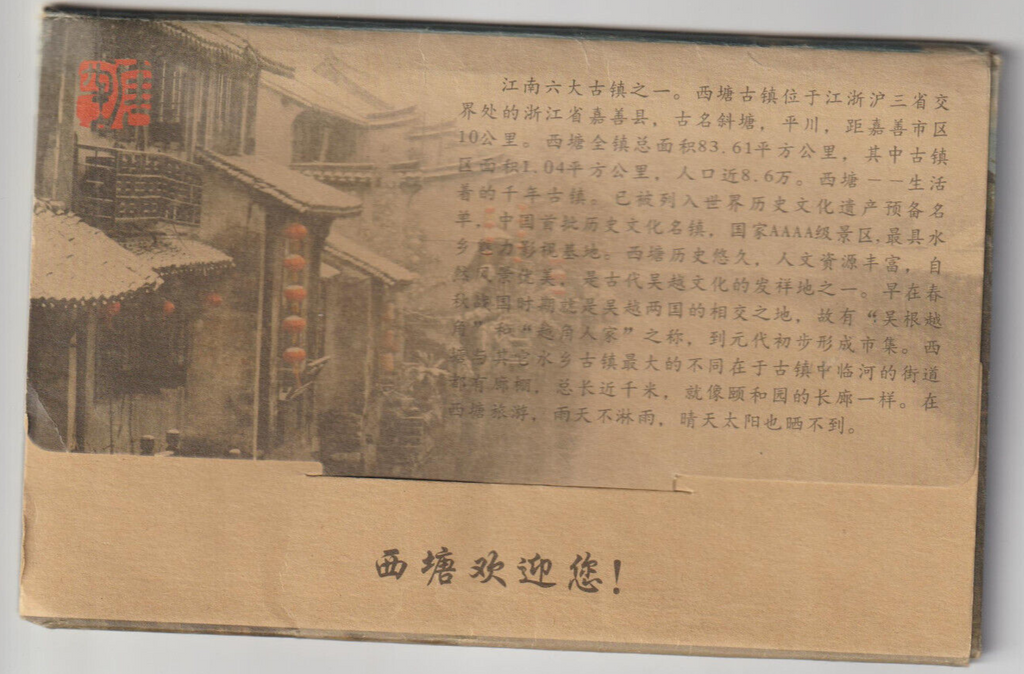 江南六大古镇之一。西塘古镇位于江浙沪三省交
界处的浙江省嘉善县，古名斜塘，平川，距嘉善市区
10公里。西塘全镇总面积83.61平方公里，其中古镇
区面积1.04平方公里，人口近8.6万。西塘——生活
着的千年古镇。已被列入世界历史文化遗产预备名
单，中国首批历史文化名镇，国家AAAA级景区，最具水
乡魅力影视基地。西塘历史悠久，人文资源丰富，自
然风景优美，是古代吴越文化的发祥地之一。早在春
秋战国时期就是吴越两国的相交之地，故有“吴根越
角”和“越角人家”之称，到元代初步形成市集。西
塘与其它水乡古镇最大的不同在于古镇中临河的街道
都有廊棚，总长近千米，就像颐和园的长廊一样。在
西塘旅游，雨天不淋雨，晴天太阳也晒不到。
西塘欢迎您！